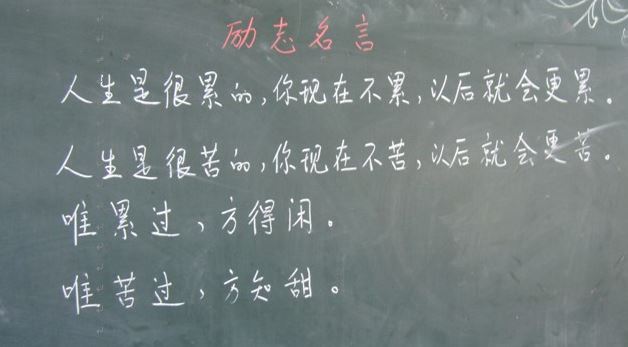 励志名言
人生是很累的,你现在不累,以后就会更累。
人生是很苦的,你现在不苦,以后就会更苦。
唯累过,方得闲。
唯苦过,方知甜。